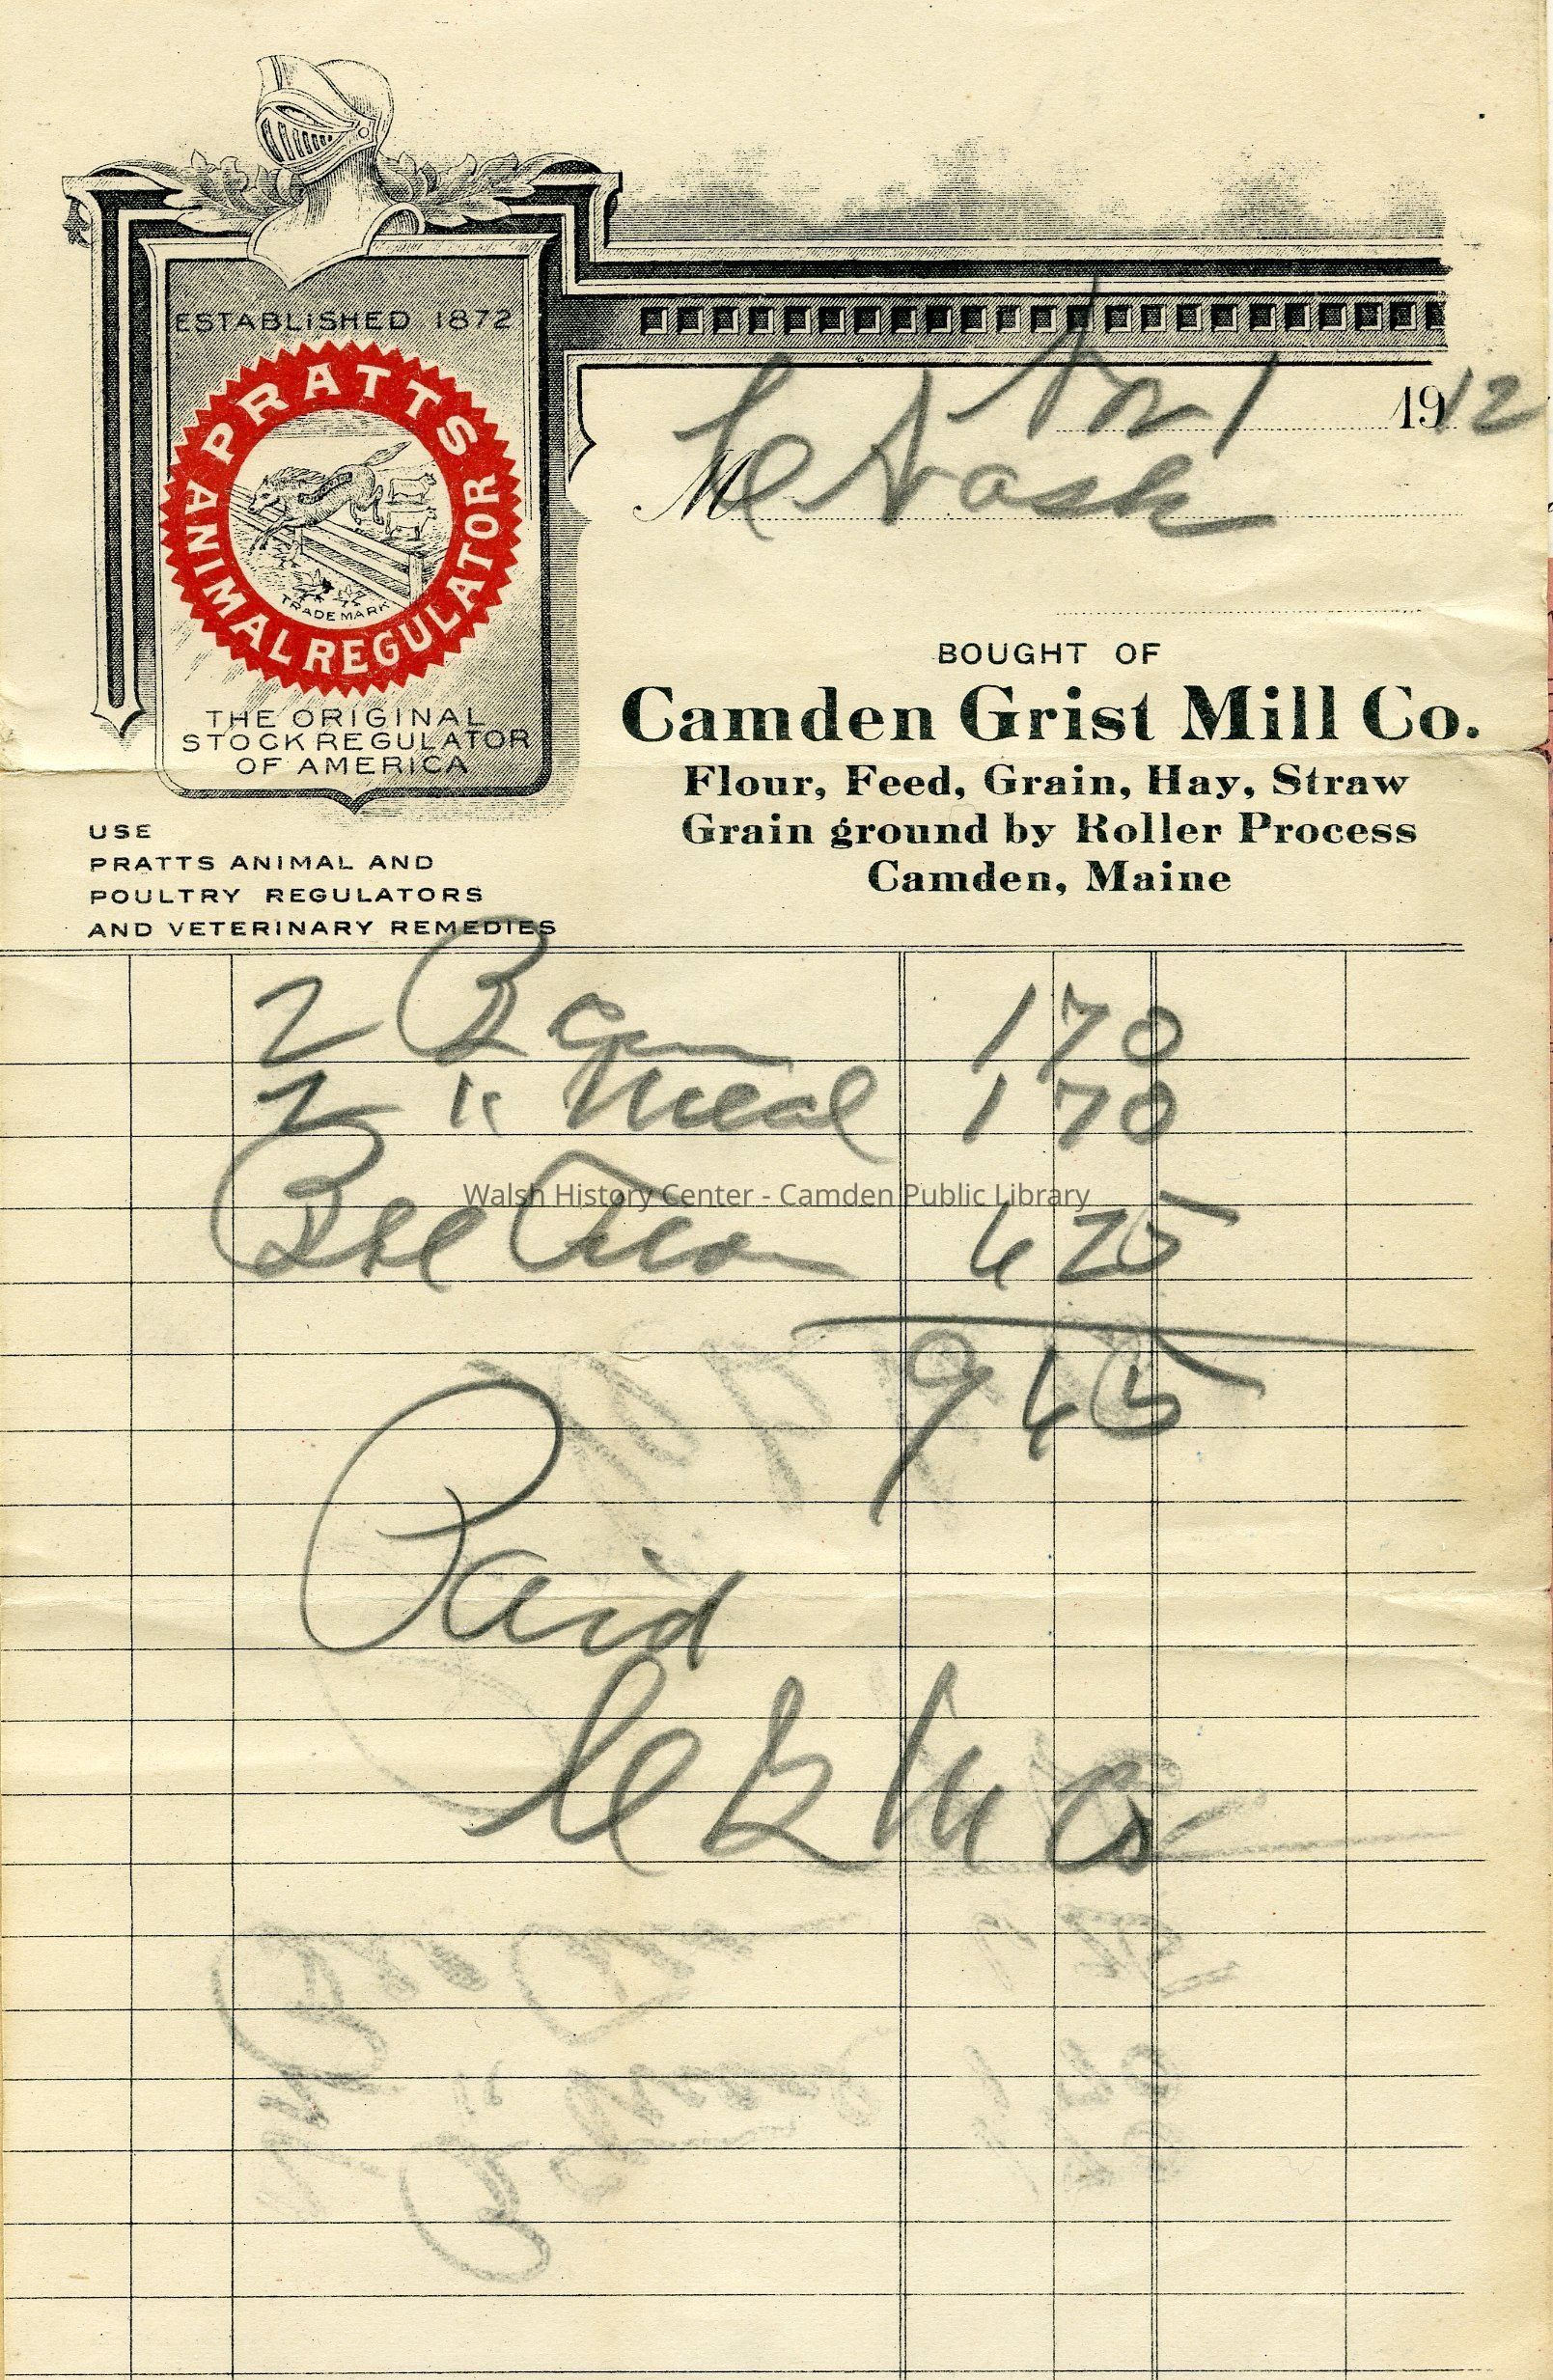 ESTABLISHED 1872
PRATTS
ANIMAL REGULATOR
TRADE MARK
THE ORIGINAL
STOCK REGULATOR
OF AMERICA
USE
PRATTS ANIMAL AND
POULTRY REGULATORS
AND VETERINARY REMEDIES
Nov 1 1912
M C Nash
BOUGHT OF
Camden Grist Mill Co.
Flour, Feed, Grain, Hay, Straw
Grain ground by Roller Process
Camden, Maine
2 B 1 70
2 " Meal 1 70
Bbl 6 25
Walsh History Center - Camden Public Library
9 65
Paid
C G M Co